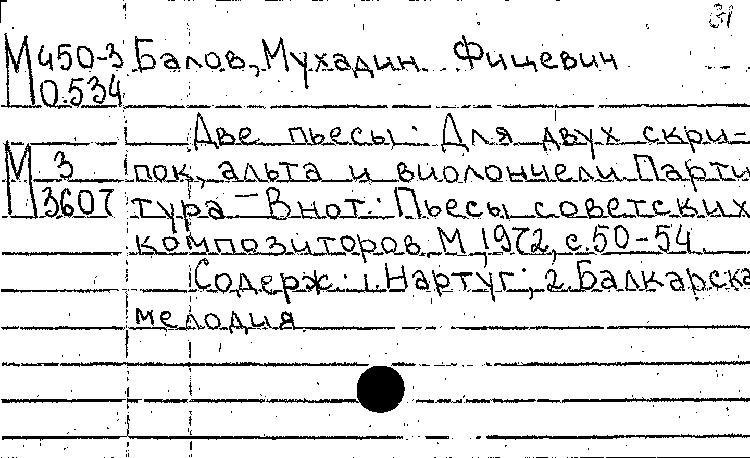 31
М 450-3 Балов, Мухадин Фицевич
0.534
Две пьесы: Для двух скри-
М 3 пок, альта и виолончели. Парти
3607 тура – В нот.: Пьесы советских
композиторов. М., 1972, с. 50-54.
Содерж.: 1. Нартуг; 2. Балкарска
мелодия